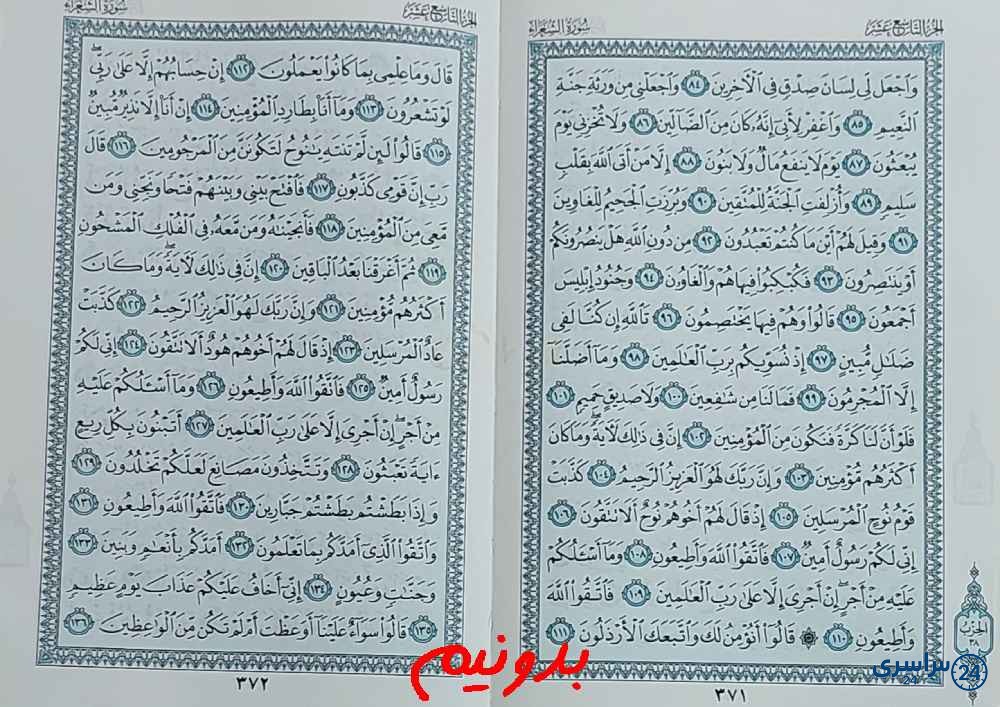 الجزء التاسع عشر
سورة الشعراء
وَاجْعَل لِّي لِسَانَ صِدْقٍ فِي الْآخِرِينَ ٨٤ وَاجْعَلْنِي مِن وَرَثَةِ جَنَّةِ
النَّعِيمِ ٨٥ وَاغْفِرْ لِأَبِي إِنَّهُ كَانَ مِنَ الضَّالِّينَ ٨٦ وَلَا تُخْزِنِي يَوْمَ
يُبْعَثُونَ ٨٧ يَوْمَ لَا يَنفَعُ مَالٌ وَلَا بَنُونَ ٨٨ إِلَّا مَنْ أَتَى اللَّهَ بِقَلْبٍ
سَلِيمٍ ٨٩ وَأُزْلِفَتِ الْجَنَّةُ لِلْمُتَّقِينَ ٩٠ وَبُرِّزَتِ الْجَحِيمُ لِلْغَاوِينَ
٩١ وَقِيلَ لَهُمْ أَيْنَ مَا كُنتُمْ تَعْبُدُونَ ٩٢ مِن دُونِ اللَّهِ هَلْ يَنصُرُونَكُمْ
أَوْ يَنتَصِرُونَ ٩٣ فَكُبْكِبُوا فِيهَا هُمْ وَالْغَاوُونَ ٩٤ وَجُنُودُ إِبْلِيسَ
أَجْمَعُونَ ٩٥ قَالُوا وَهُمْ فِيهَا يَخْتَصِمُونَ ٩٦ تَاللَّهِ إِن كُنَّا لَفِي
ضَلَالٍ مُّبِينٍ ٩٧ إِذْ نُسَوِّيكُم بِرَبِّ الْعَالَمِينَ ٩٨ وَمَا أَضَلَّنَا
إِلَّا الْمُجْرِمُونَ ٩٩ فَمَا لَنَا مِن شَافِعِينَ ١٠٠ وَلَا صَدِيقٍ حَمِيمٍ ١٠١
فَلَوْ أَنَّ لَنَا كَرَّةً فَنَكُونَ مِنَ الْمُؤْمِنِينَ ١٠٢ إِنَّ فِي ذَٰلِكَ لَآيَةً وَمَا كَانَ
أَكْثَرُهُم مُّؤْمِنِينَ ١٠٣ وَإِنَّ رَبَّكَ لَهُوَ الْعَزِيزُ الرَّحِيمُ ١٠٤ كَذَّبَتْ
قَوْمُ نُوحٍ الْمُرْسَلِينَ ١٠٥ إِذْ قَالَ لَهُمْ أَخُوهُمْ نُوحٌ أَلَا تَتَّقُونَ ١٠٦
إِنِّي لَكُمْ رَسُولٌ أَمِينٌ ١٠٧ فَاتَّقُوا اللَّهَ وَأَطِيعُونِ ١٠٨ وَمَا أَسْأَلُكُمْ
عَلَيْهِ مِنْ أَجْرٍ إِنْ أَجْرِيَ إِلَّا عَلَىٰ رَبِّ الْعَالَمِينَ ١٠٩ فَاتَّقُوا اللَّهَ
وَأَطِيعُونِ ١١٠ ۞ قَالُوا أَنُؤْمِنُ لَكَ وَاتَّبَعَكَ الْأَرْذَلُونَ ١١١
الحزب
٣٨
٣٧١
الجزء التاسع عشر
سورة الشعراء
قَالَ وَمَا عِلْمِي بِمَا كَانُوا يَعْمَلُونَ ١١٢ إِنْ حِسَابُهُمْ إِلَّا عَلَىٰ رَبِّي
لَوْ تَشْعُرُونَ ١١٣ وَمَا أَنَا بِطَارِدِ الْمُؤْمِنِينَ ١١٤ إِنْ أَنَا إِلَّا نَذِيرٌ مُّبِينٌ
١١٥ قَالُوا لَئِن لَّمْ تَنتَهِ يَا نُوحُ لَتَكُونَنَّ مِنَ الْمَرْجُومِينَ ١١٦ قَالَ
رَبِّ إِنَّ قَوْمِي كَذَّبُونِ ١١٧ فَافْتَحْ بَيْنِي وَبَيْنَهُمْ فَتْحًا وَنَجِّنِي وَمَن
مَّعِيَ مِنَ الْمُؤْمِنِينَ ١١٨ فَأَنجَيْنَاهُ وَمَن مَّعَهُ فِي الْفُلْكِ الْمَشْحُونِ
١١٩ ثُمَّ أَغْرَقْنَا بَعْدُ الْبَاقِينَ ١٢٠ إِنَّ فِي ذَٰلِكَ لَآيَةً وَمَا كَانَ
أَكْثَرُهُم مُّؤْمِنِينَ ١٢١ وَإِنَّ رَبَّكَ لَهُوَ الْعَزِيزُ الرَّحِيمُ ١٢٢ كَذَّبَتْ
عَادٌ الْمُرْسَلِينَ ١٢٣ إِذْ قَالَ لَهُمْ أَخُوهُمْ هُودٌ أَلَا تَتَّقُونَ ١٢٤ إِنِّي لَكُمْ
رَسُولٌ أَمِينٌ ١٢٥ فَاتَّقُوا اللَّهَ وَأَطِيعُونِ ١٢٦ وَمَا أَسْأَلُكُمْ عَلَيْهِ
مِنْ أَجْرٍ إِنْ أَجْرِيَ إِلَّا عَلَىٰ رَبِّ الْعَالَمِينَ ١٢٧ أَتَبْنُونَ بِكُلِّ رِيعٍ
ءَايَةً تَعْبَثُونَ ١٢٨ وَتَتَّخِذُونَ مَصَانِعَ لَعَلَّكُمْ تَخْلُدُونَ ١٢٩
وَإِذَا بَطَشْتُم بَطَشْتُمْ جَبَّارِينَ ١٣٠ فَاتَّقُوا اللَّهَ وَأَطِيعُونِ ١٣١
وَاتَّقُوا الَّذِي أَمَدَّكُم بِمَا تَعْلَمُونَ ١٣٢ أَمَدَّكُم بِأَنْعَامٍ وَبَنِينَ ١٣٣
وَجَنَّاتٍ وَعُيُونٍ ١٣٤ إِنِّي أَخَافُ عَلَيْكُمْ عَذَابَ يَوْمٍ عَظِيمٍ
١٣٥ قَالُوا سَوَاءٌ عَلَيْنَا أَوَعَظْتَ أَمْ لَمْ تَكُن مِّنَ الْوَاعِظِينَ ١٣٦
٣٧٢
بدونیم
سراسری 24
24